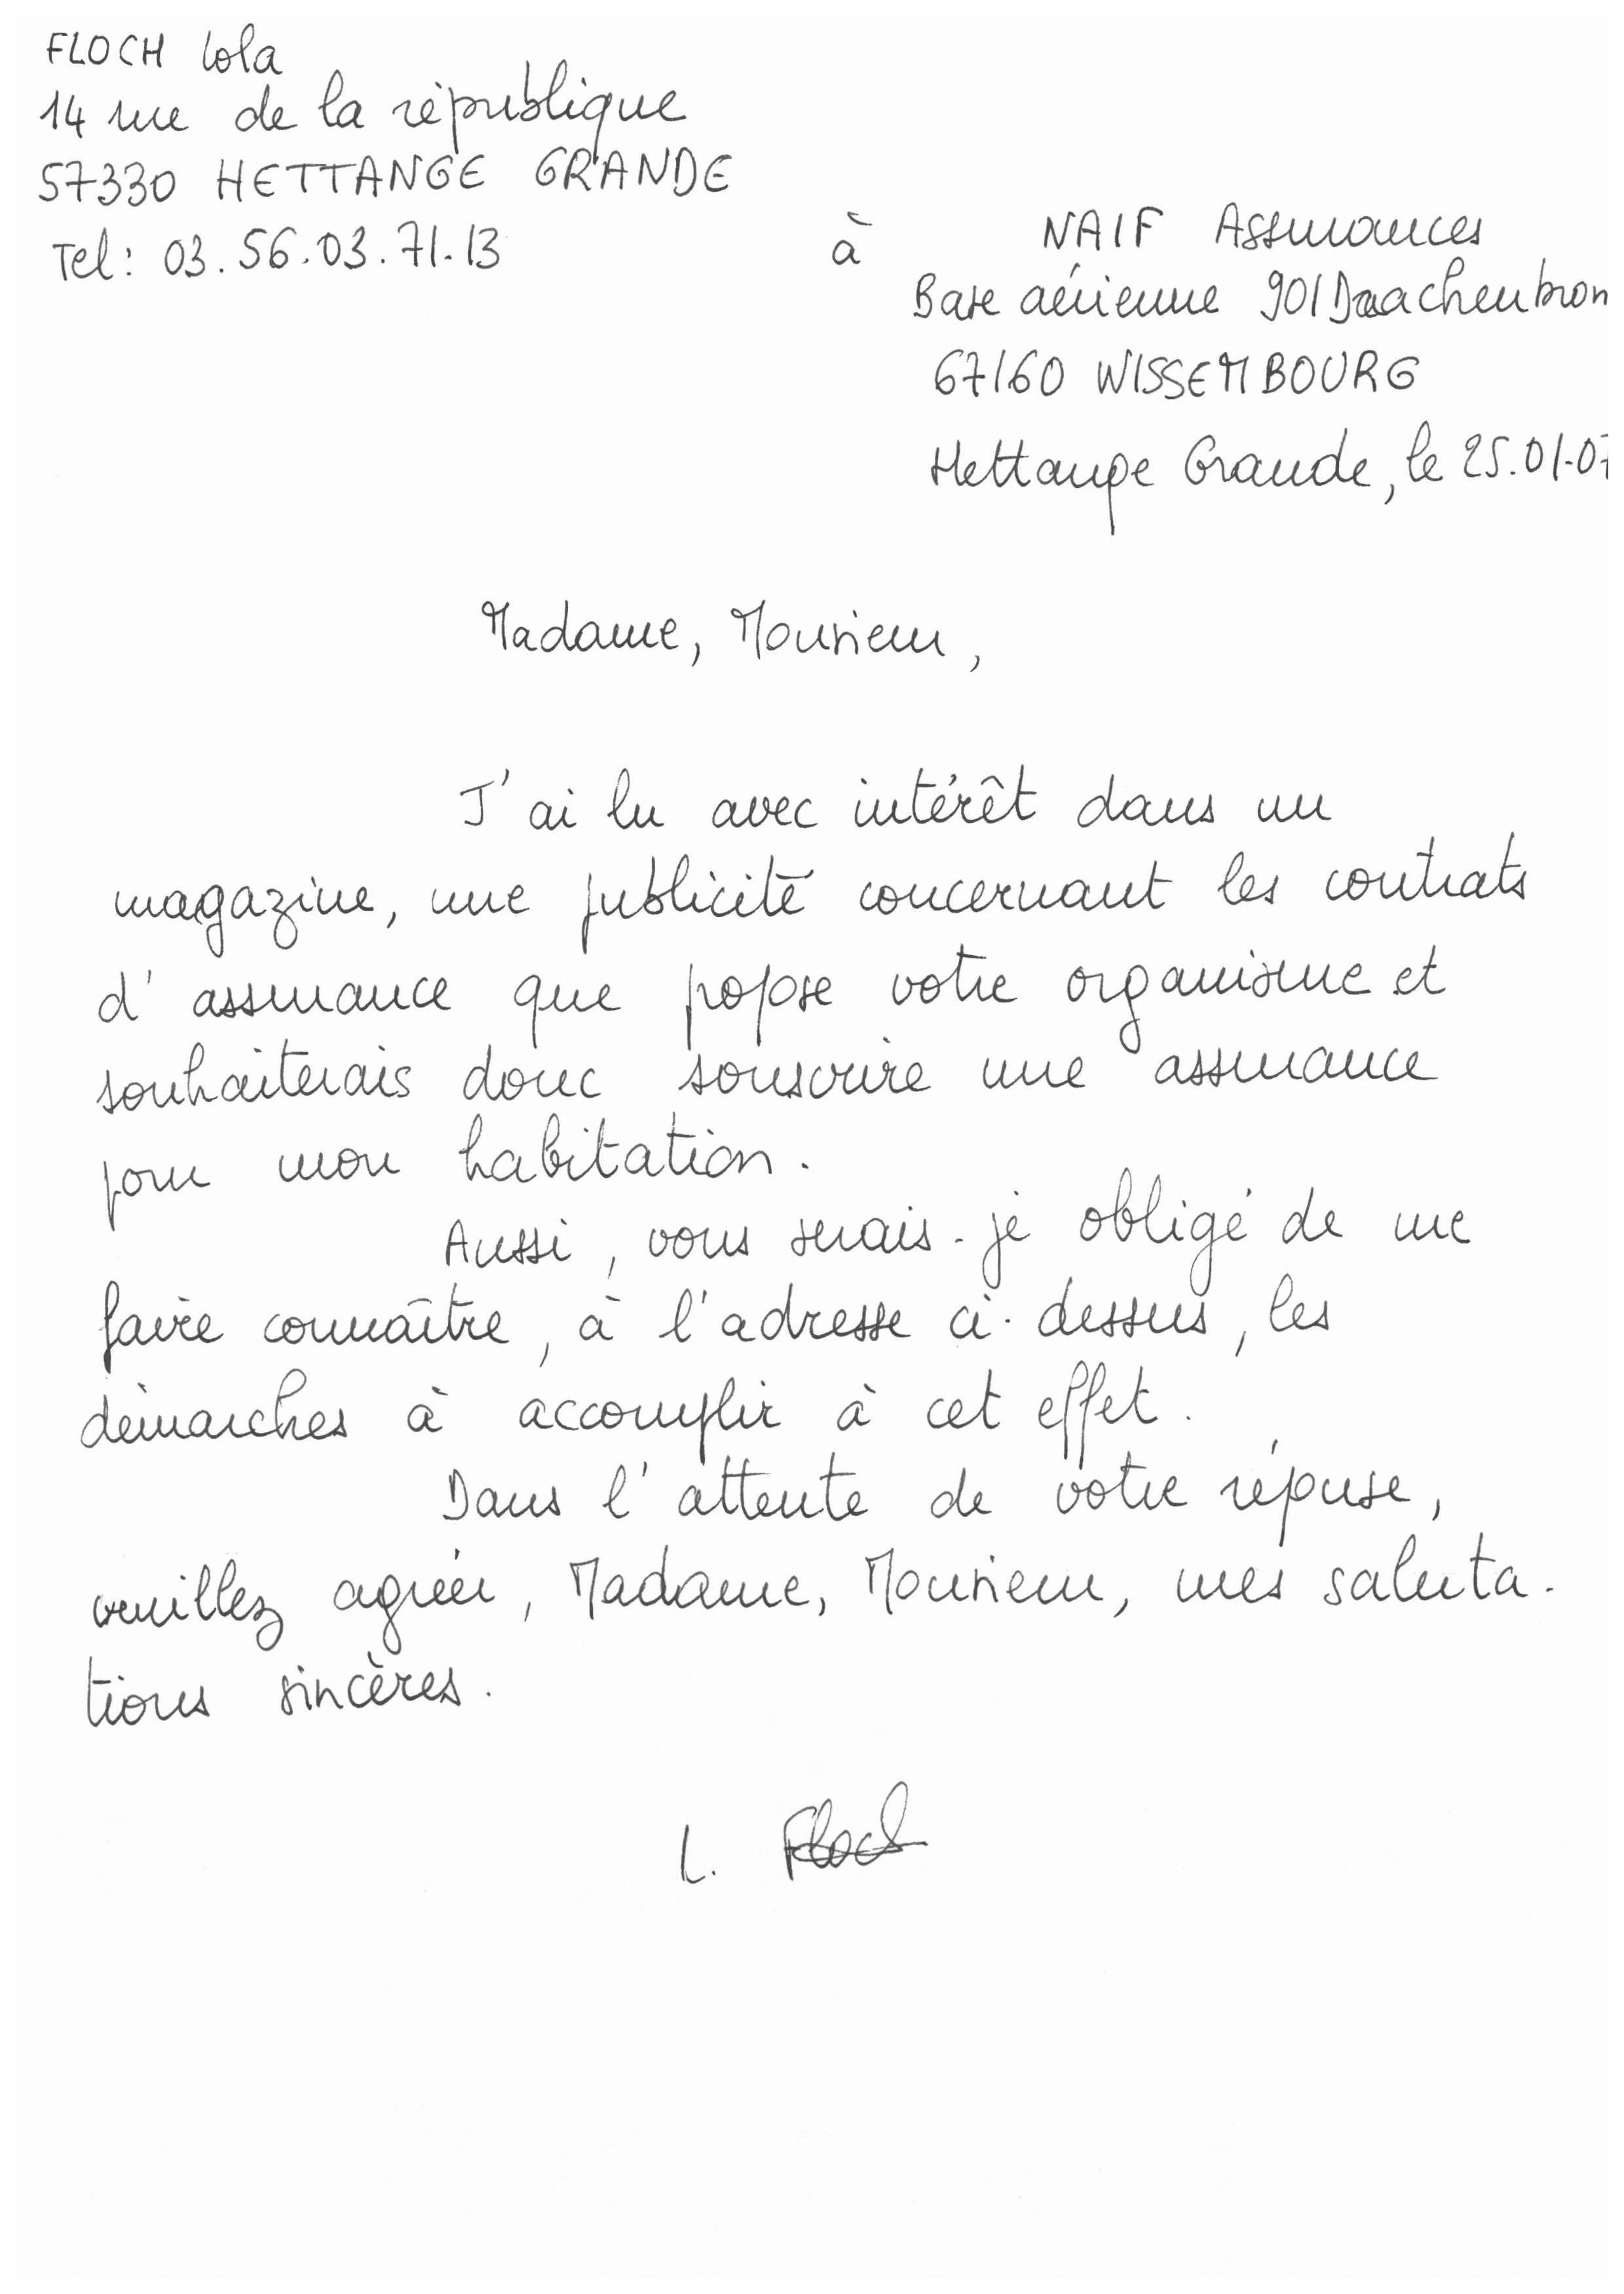 FLOCH Lola
14 rue de la république
57330 HETTANGE GRANDE
Tel: 03.56.03.71.13
à NAIF Assurances
Base aérienne 901 Drachenbron
67160 WISSEMBOURG
Hettange Grande, le 25.01.07
Madame, Monsieur,
J'ai lu avec intérêt dans un
magazine, une publicité concernant les contrats
d'assurance que propose votre organisme et
souhaiterais donc souscrire une assurance
pour mon habitation.
Aussi, vous serais-je obligé de me
faire connaître, à l'adresse ci-dessus, les
démarches à accomplir à cet effet.
Dans l'attente de votre réponse,
veuillez agréer, Madame, Monsieur, mes saluta-
tions sincères.
L. Floch